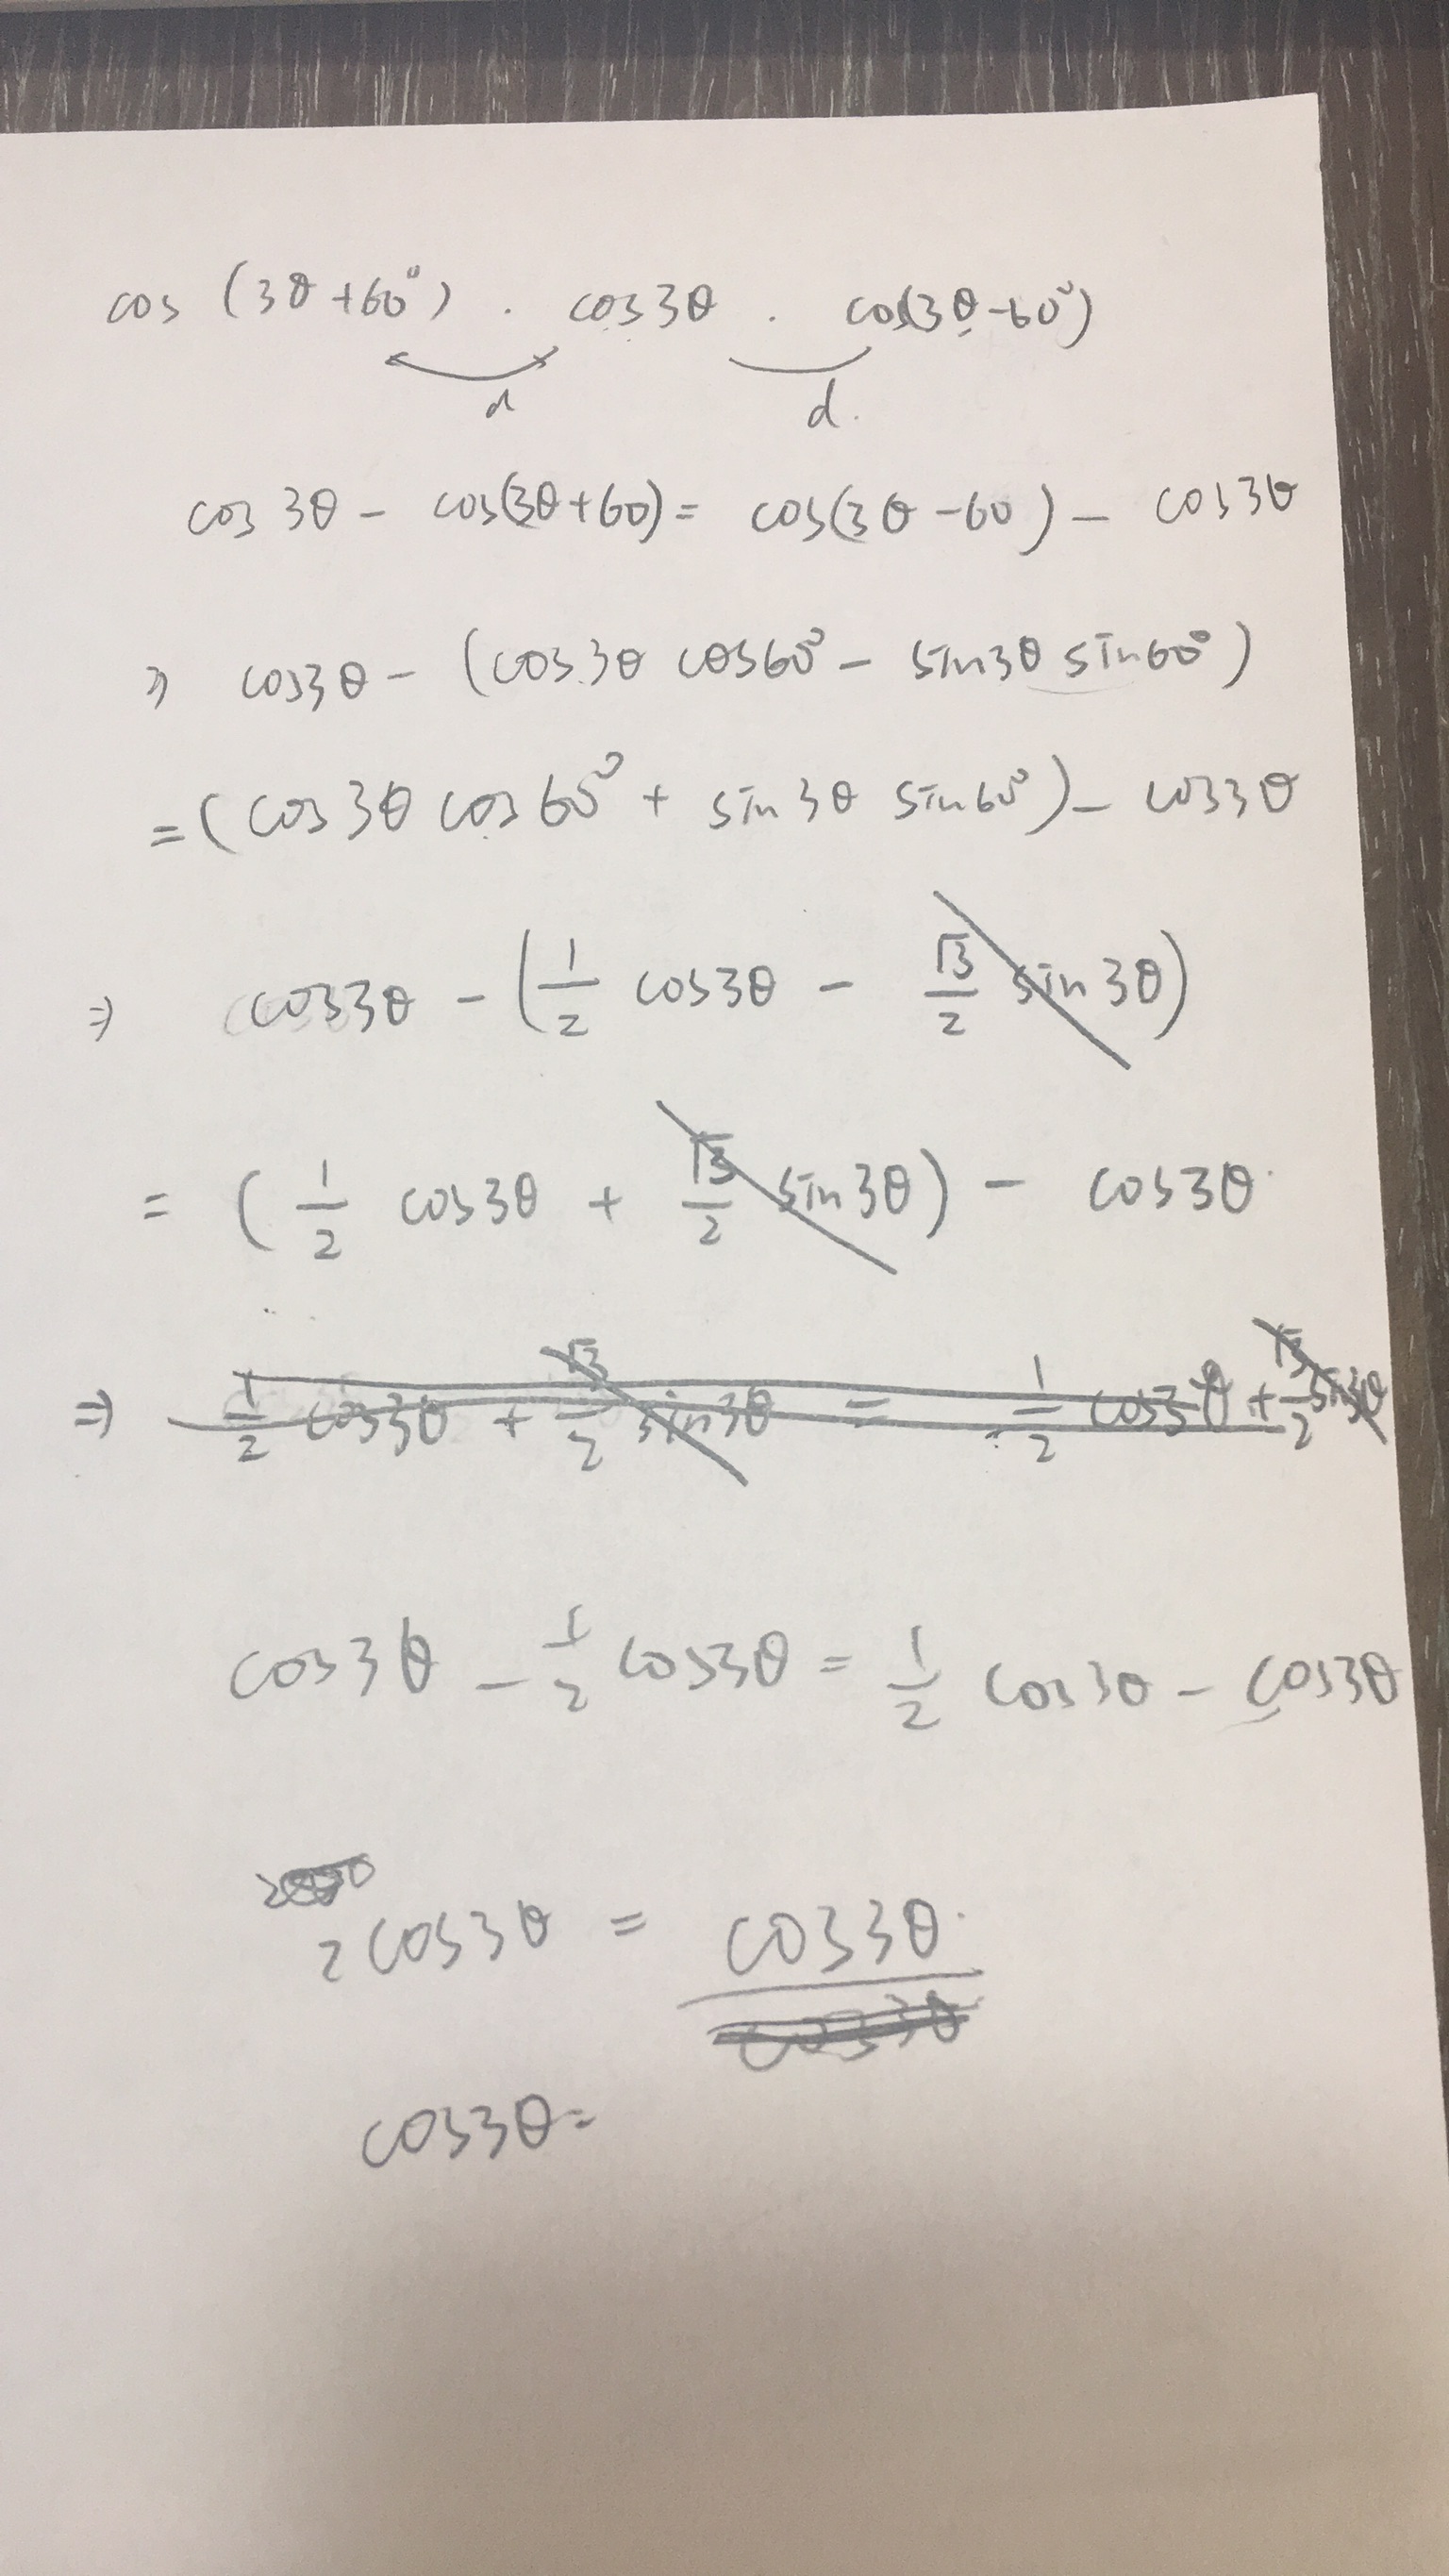 cos (3θ+60°) . cos3θ . cos(3θ-60°)
d d.
cos 3θ - cos(3θ+60) = cos(3θ-60) - cos3θ
⇒ cos3θ - (cos3θ cos60° - sin3θ sin60°)
= (cos3θ cos60° + sin3θ sin60°) - cos3θ
⇒ cos3θ - (1/2 cos3θ - √3/2 sin3θ)
= (1/2 cos3θ + √3/2 sin3θ) - cos3θ
⇒ 1/2 cos3θ + √3/2 sin3θ = 1/2 cos3θ + √3/2 sin3θ
cos3θ - 1/2 cos3θ = 1/2 cos3θ - cos3θ
2cos3θ = cos3θ
cos3θ
cos3θ =